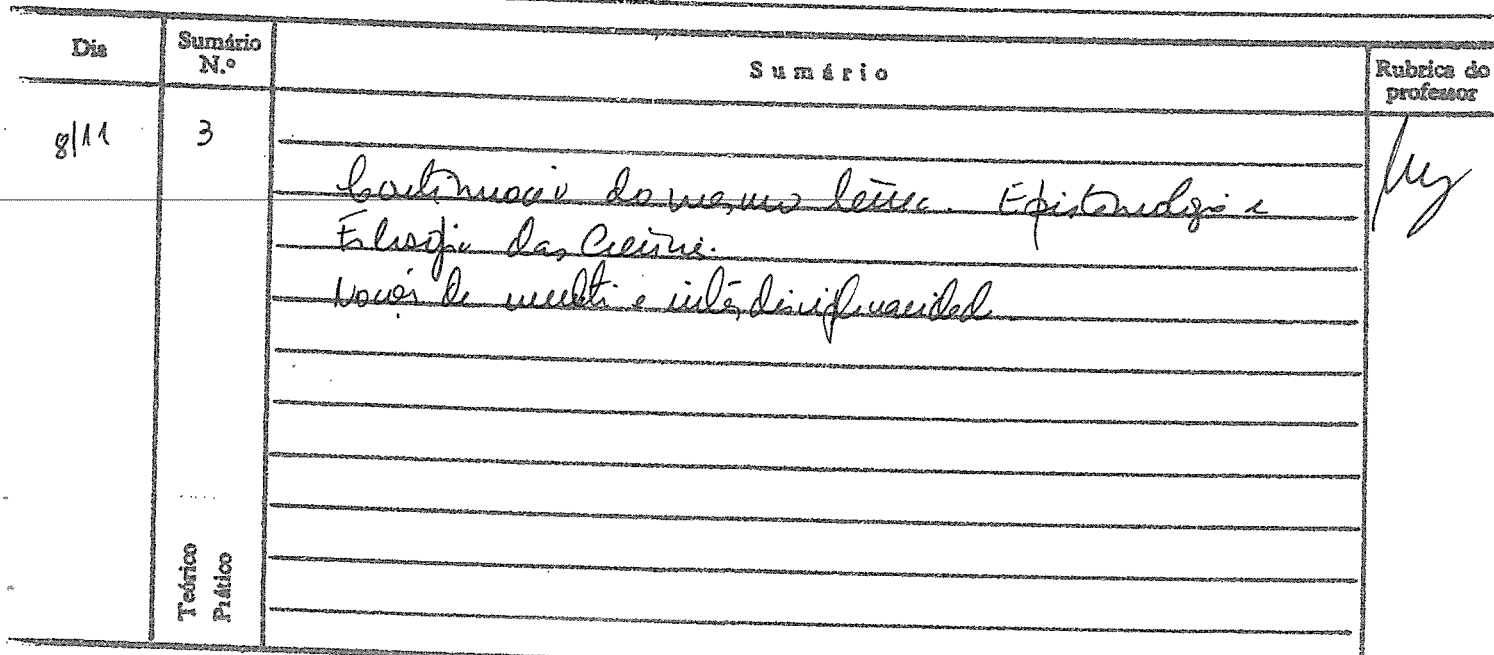 Dia
Sumário N.º
Sumário
Rubrica do professor
8/11
3
Continuação do mesmo tema. Epistemologia e
Filosofia das Ciências.
Noções de multi e interdisciplinaridade
Teórico
Prático